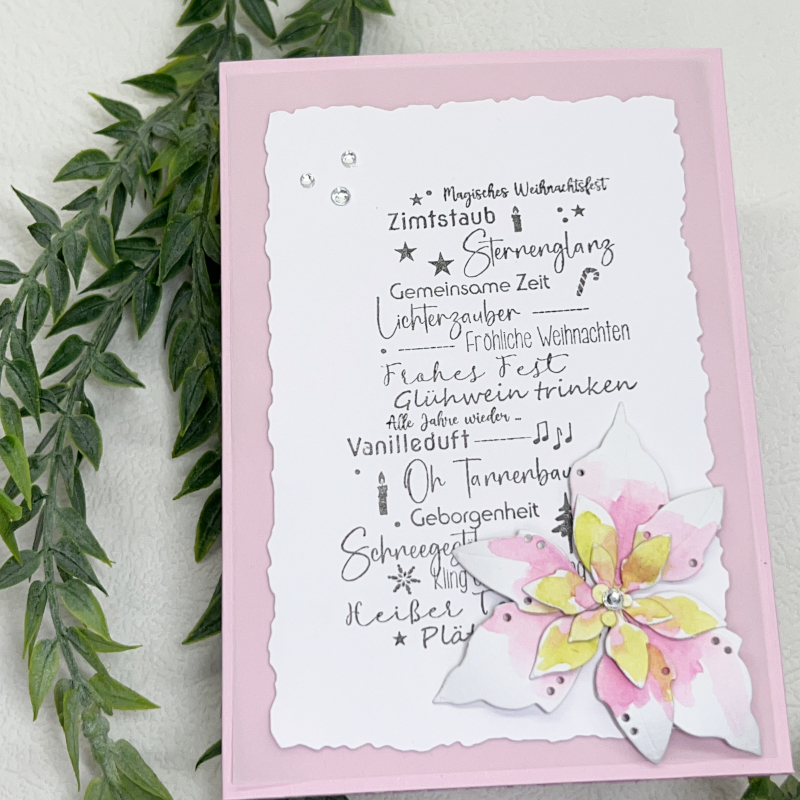 Magisches Weihnachtsfest
Zimtstaub
Sternenglanz
Gemeinsame Zeit
Lichterzauber
Fröhliche Weihnachten
Frohes Fest
Glühwein trinken
Alle Jahre wieder ...
Vanilleduft
Oh
Geborgenheit
Heißer